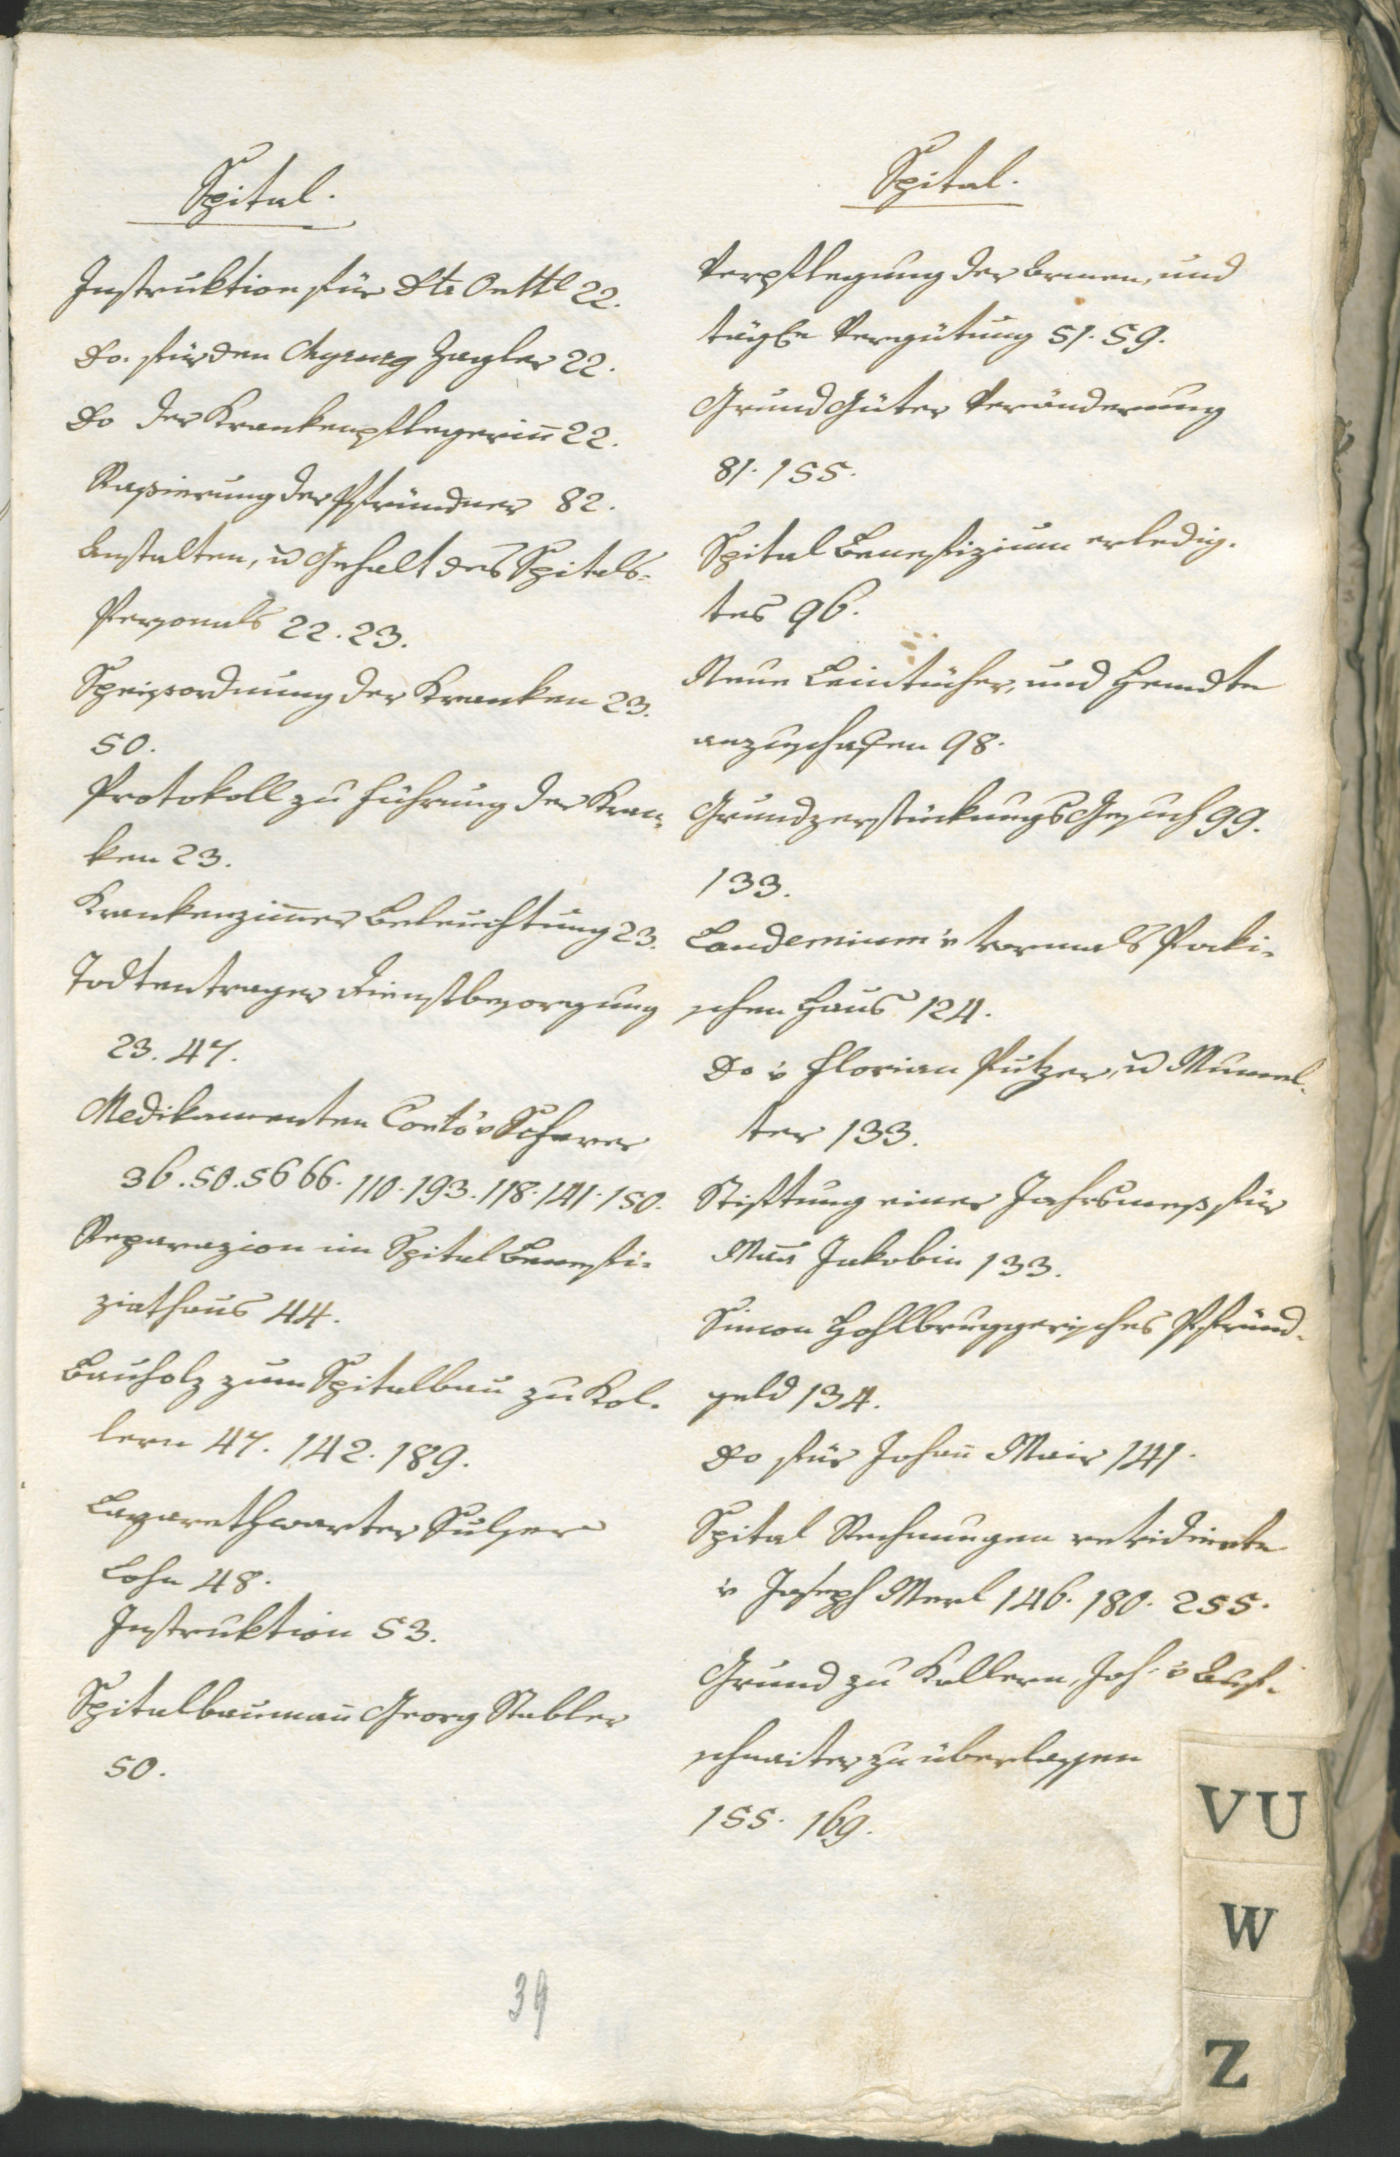 Spital.
Instruktion für Dtr Oettl 22.
Do. für den Chyrurg Zagler 22.
Do der Krankenpflegerin̄ 22.
Rasierung der Pfründner 82.
Anstalten, u Gehalt des Spitals-
Personals 22. 23.
Speisordnung der Kranken 23.
50.
Protokoll zu Führung der Kran-
ken 23.
Krankenzim̄er Beleuchtung 23.
Todtentrager Dienstbesorgung
23. 47.
Medikamenten Conto v Scherer
36. 50. 56 66. 110. 193. 118. 141. 150.
Reparazion im Spital Benefi-
ziathaus 44.
Bauholz zum Spitalbau zu Kol-
lern 47. 142. 189.
Lazarethwarter Sulzer
Lohn 48.
Instruktion 53.
Spitalbauman̄ Georg Stabler
50.
Spital.
Verpflegung der Armen, und
tägle Vergütung 51. 59.
Grund Güter Veränderung
81. 155.
Spital Benefizium erledig-
tes 96.
Neue Leintücher, und Hemdte
anzuschafen 98.
Grundzerstückungs Gesuch 99.
133.
Laudemium v vormals Paki-
schen Haus 124.
Do v Florian Putzer, u Mumel-
ter 133.
Stiftung einer Jahrsmess für
Jakobin 133.
Simon Hohlbruggerisches Pfründ-
geld 134.
Do für Johan̄ Mair 141.
Spital Rechnungen revidierte
v Joseph Merl 146. 180. 255.
Grund zu Kollern, Jos. v
zu überlassen
155. 169.
VU
W
Z
39